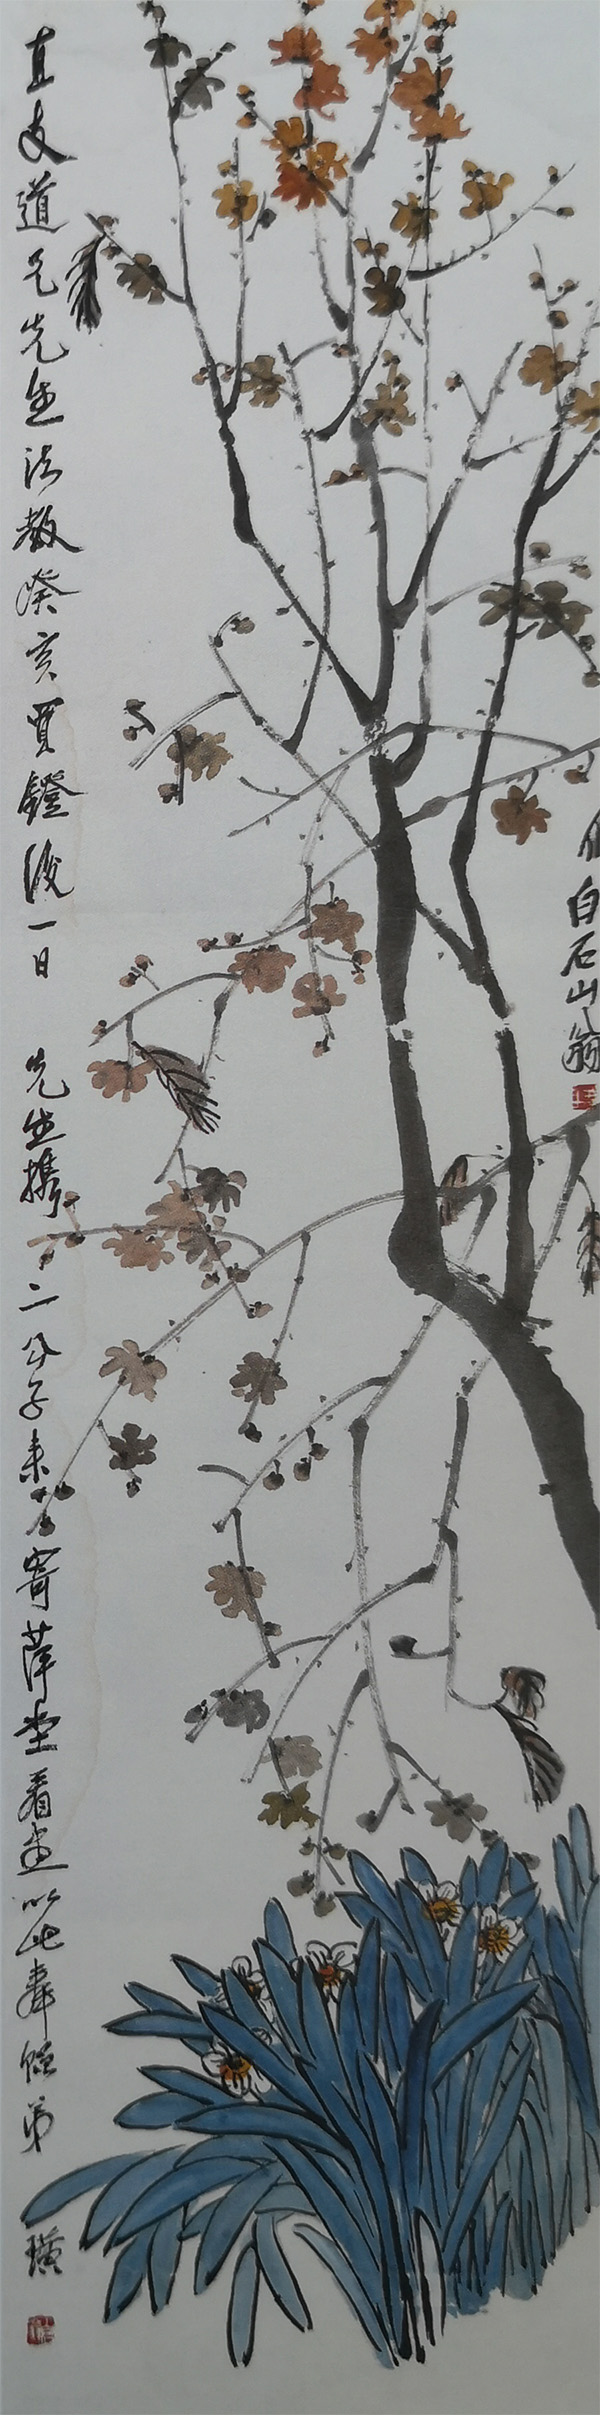 白石山翁
直支道兄先生法教癸亥買鐙後一日 先生携二公子来寄萍堂看畫以此奉贈弟 璜